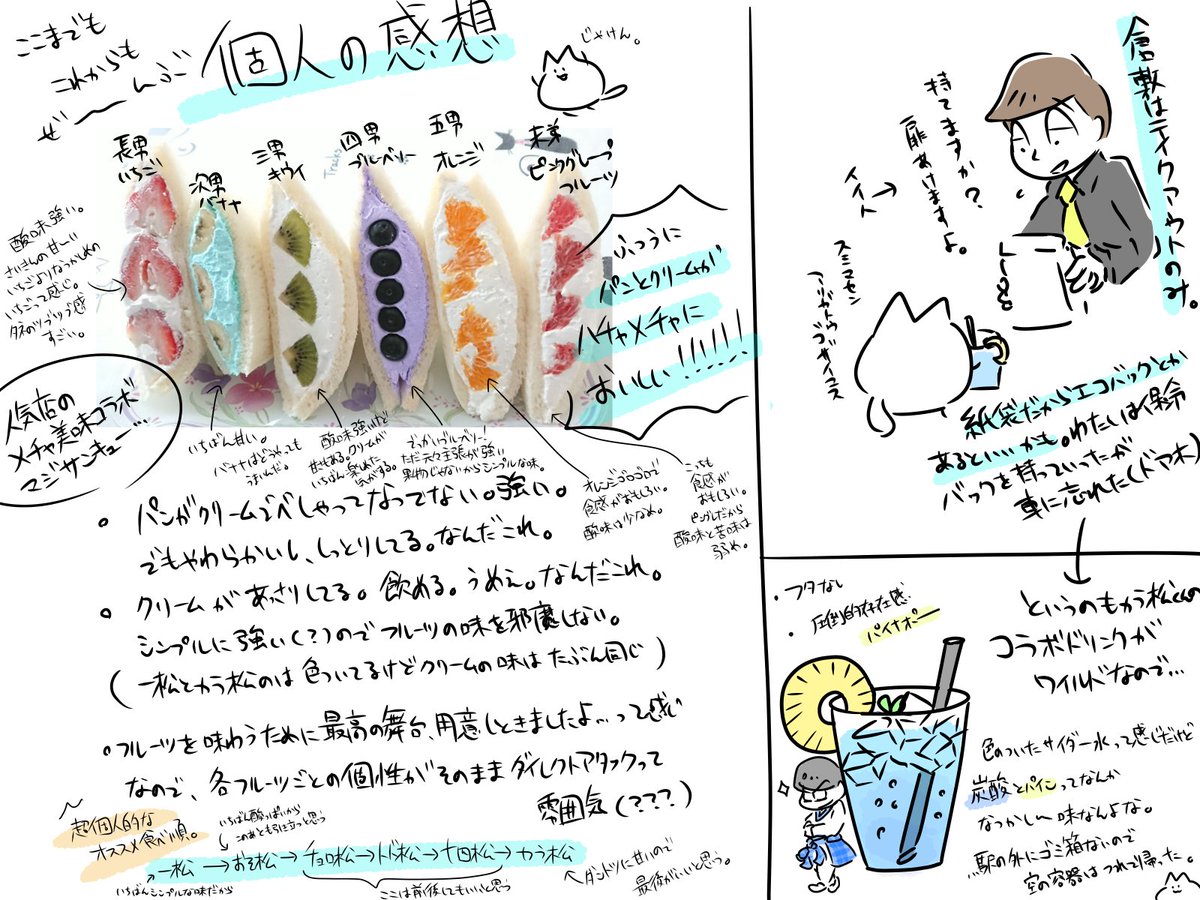 ここまでも
これからも
ぜーんぶ
個人の感想
じゃけん。
長男
いちご
次男
バナナ
三男
キウイ
四男
ブルーベリー
五男
オレンジ
末弟
ピンクグレープ
フルーツ
酸味強い。
さいきんの甘ーい
いちごよりなつかしめの
いちごって感じ。
タネのツブツブ感
すごい。
ふつうに
パンとクリームが
ハチャメチャに
おいしい!!!!!!
人気店の
メチャ美味コラボ
マジサンキュー…
いちばん甘い。
バナナはどうやっても
うまいんだ。
酸味強いけど
甘味はある。クリームが
いちばん楽しめた
気がする。
でっかいブルーベリー!
ただ元々主張が強い
果物じゃないからシンプルな味。
オレンジゴロゴロで
食感がおもしろい。
酸味は少なめ。
こっちも
食感が
おもしろい。
ピングレだから
酸味と苦味は
弱め。
・パンがクリームでべしゃってなってない。強い。
でもやわらかいし、しっとりしてる。なんだこれ。
・クリームがあっさりしてる。飲める。うめえ。なんだこれ。
シンプルに強い(?)のでフルーツの味を邪魔しない。
(一松とカラ松のは色ついてるけどクリームの味はたぶん同じ)
・フルーツを味わうために最高の舞台、用意しときましたよ…って感じ
なので、各フルーツごとの個性がそのままダイレクトアタックって
雰囲気(???)
超個人的な
オススメ食べ順。
いちばん酸っぱいから
このあともっと立つと思う
一松→おそ松→チョロ松→トド松→十四松→カラ松
いちばんシンプルな味だから
ここは前後してもいいと思う
ダントツに甘いので
最後がいいと思う。
倉敷はテイクアウトのみ。
持てますか?
扉あけますよ。
イイト
スミマセン
アリガトウゴザイマス
紙袋だからエコバックとか
あるといいかも。わたいは保冷
バックを持っていったが
車に忘れた(ドアホ)
というのもカラ松くんの
コラボドリンクが
ワイルドなので…
・フタなし
・圧倒的存在感
パイナポー
色のついたサイダー水って感じだけど
炭酸とパインってなんか
なつかしい味なんよな。
駅の外にゴミ箱ないので
空の容器はつれて帰った。